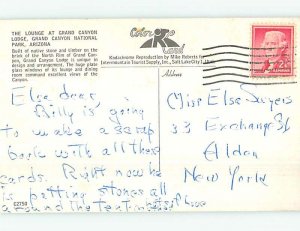 THE LOUNGE AT GRAND CANYON
LODGE, GRAND CANYON NATIONAL
PARK, ARIZONA
Built of native stone and timber on the
brink of the North Rim of Grand Canyon,
Grand Canyon Lodge is unique in
design and arrangement. The huge plate
glass windows of its lounge and dining
room command excellent views of the
Canyon.
Color Card
Kodachrome Reproduction by Mike Roberts for
Intermountain Tourist Supply, Inc., Salt Lake City 1, Utah
Address
Else dear,
Billy is going
to make a scrap
book with all these
cards. Right now he
is putting stones all
around the tent
Miss Else Seyers
33 Exchange St
Alden
New York
C2750